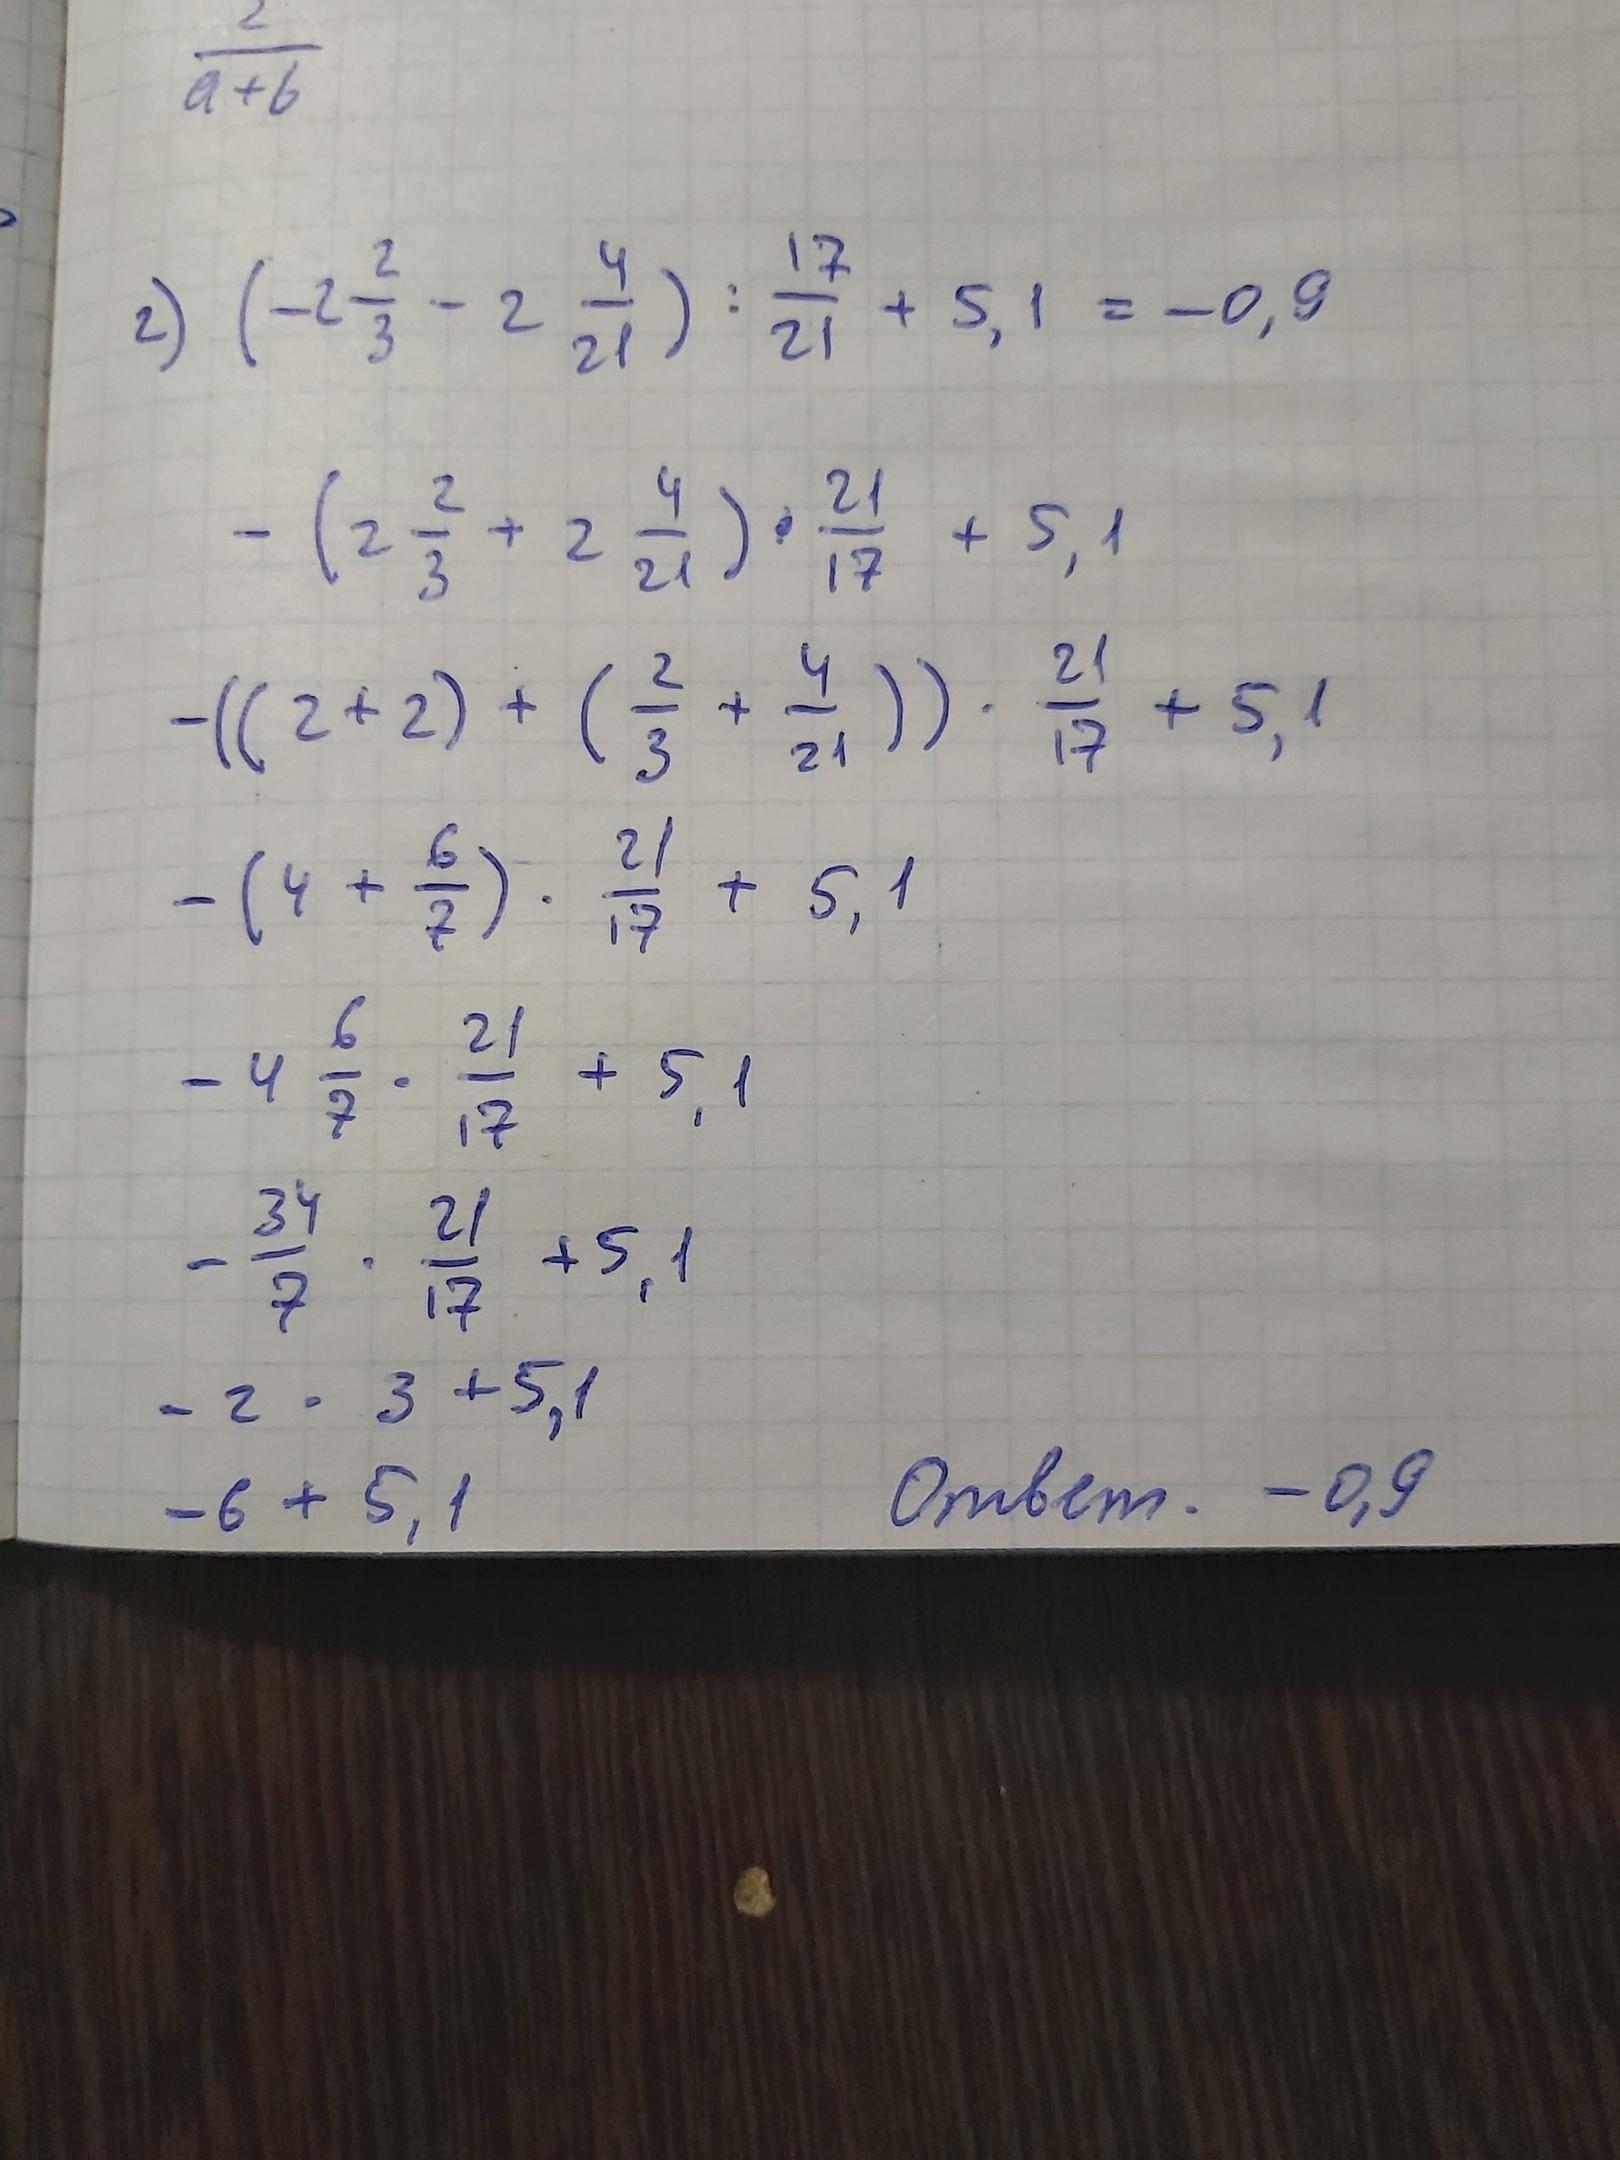 2
a+b
2) (-2 2/3 - 2 4/21) : 17/21 + 5,1 = -0,9
-(2 2/3 + 2 4/21) · 21/17 + 5,1
-((2+2) + (2/3 + 4/21)) · 21/17 + 5,1
-(4 + 6/7) · 21/17 + 5,1
-4 6/7 · 21/17 + 5,1
-34/7 · 21/17 + 5,1
-2 · 3 + 5,1
-6 + 5,1
Ответ. -0,9